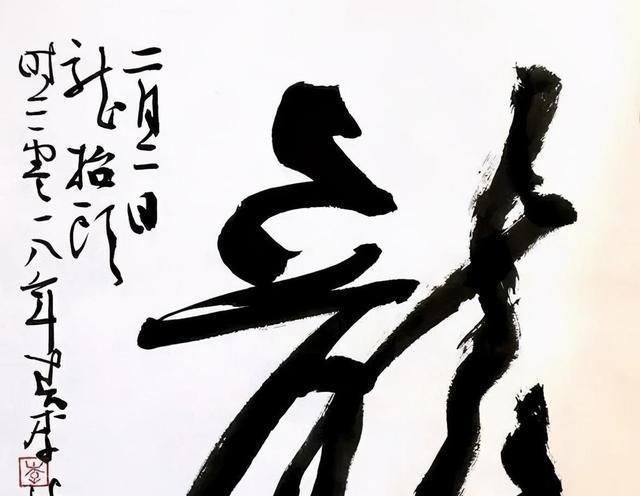 龍
二月二日
龍抬頭
时二零一八年